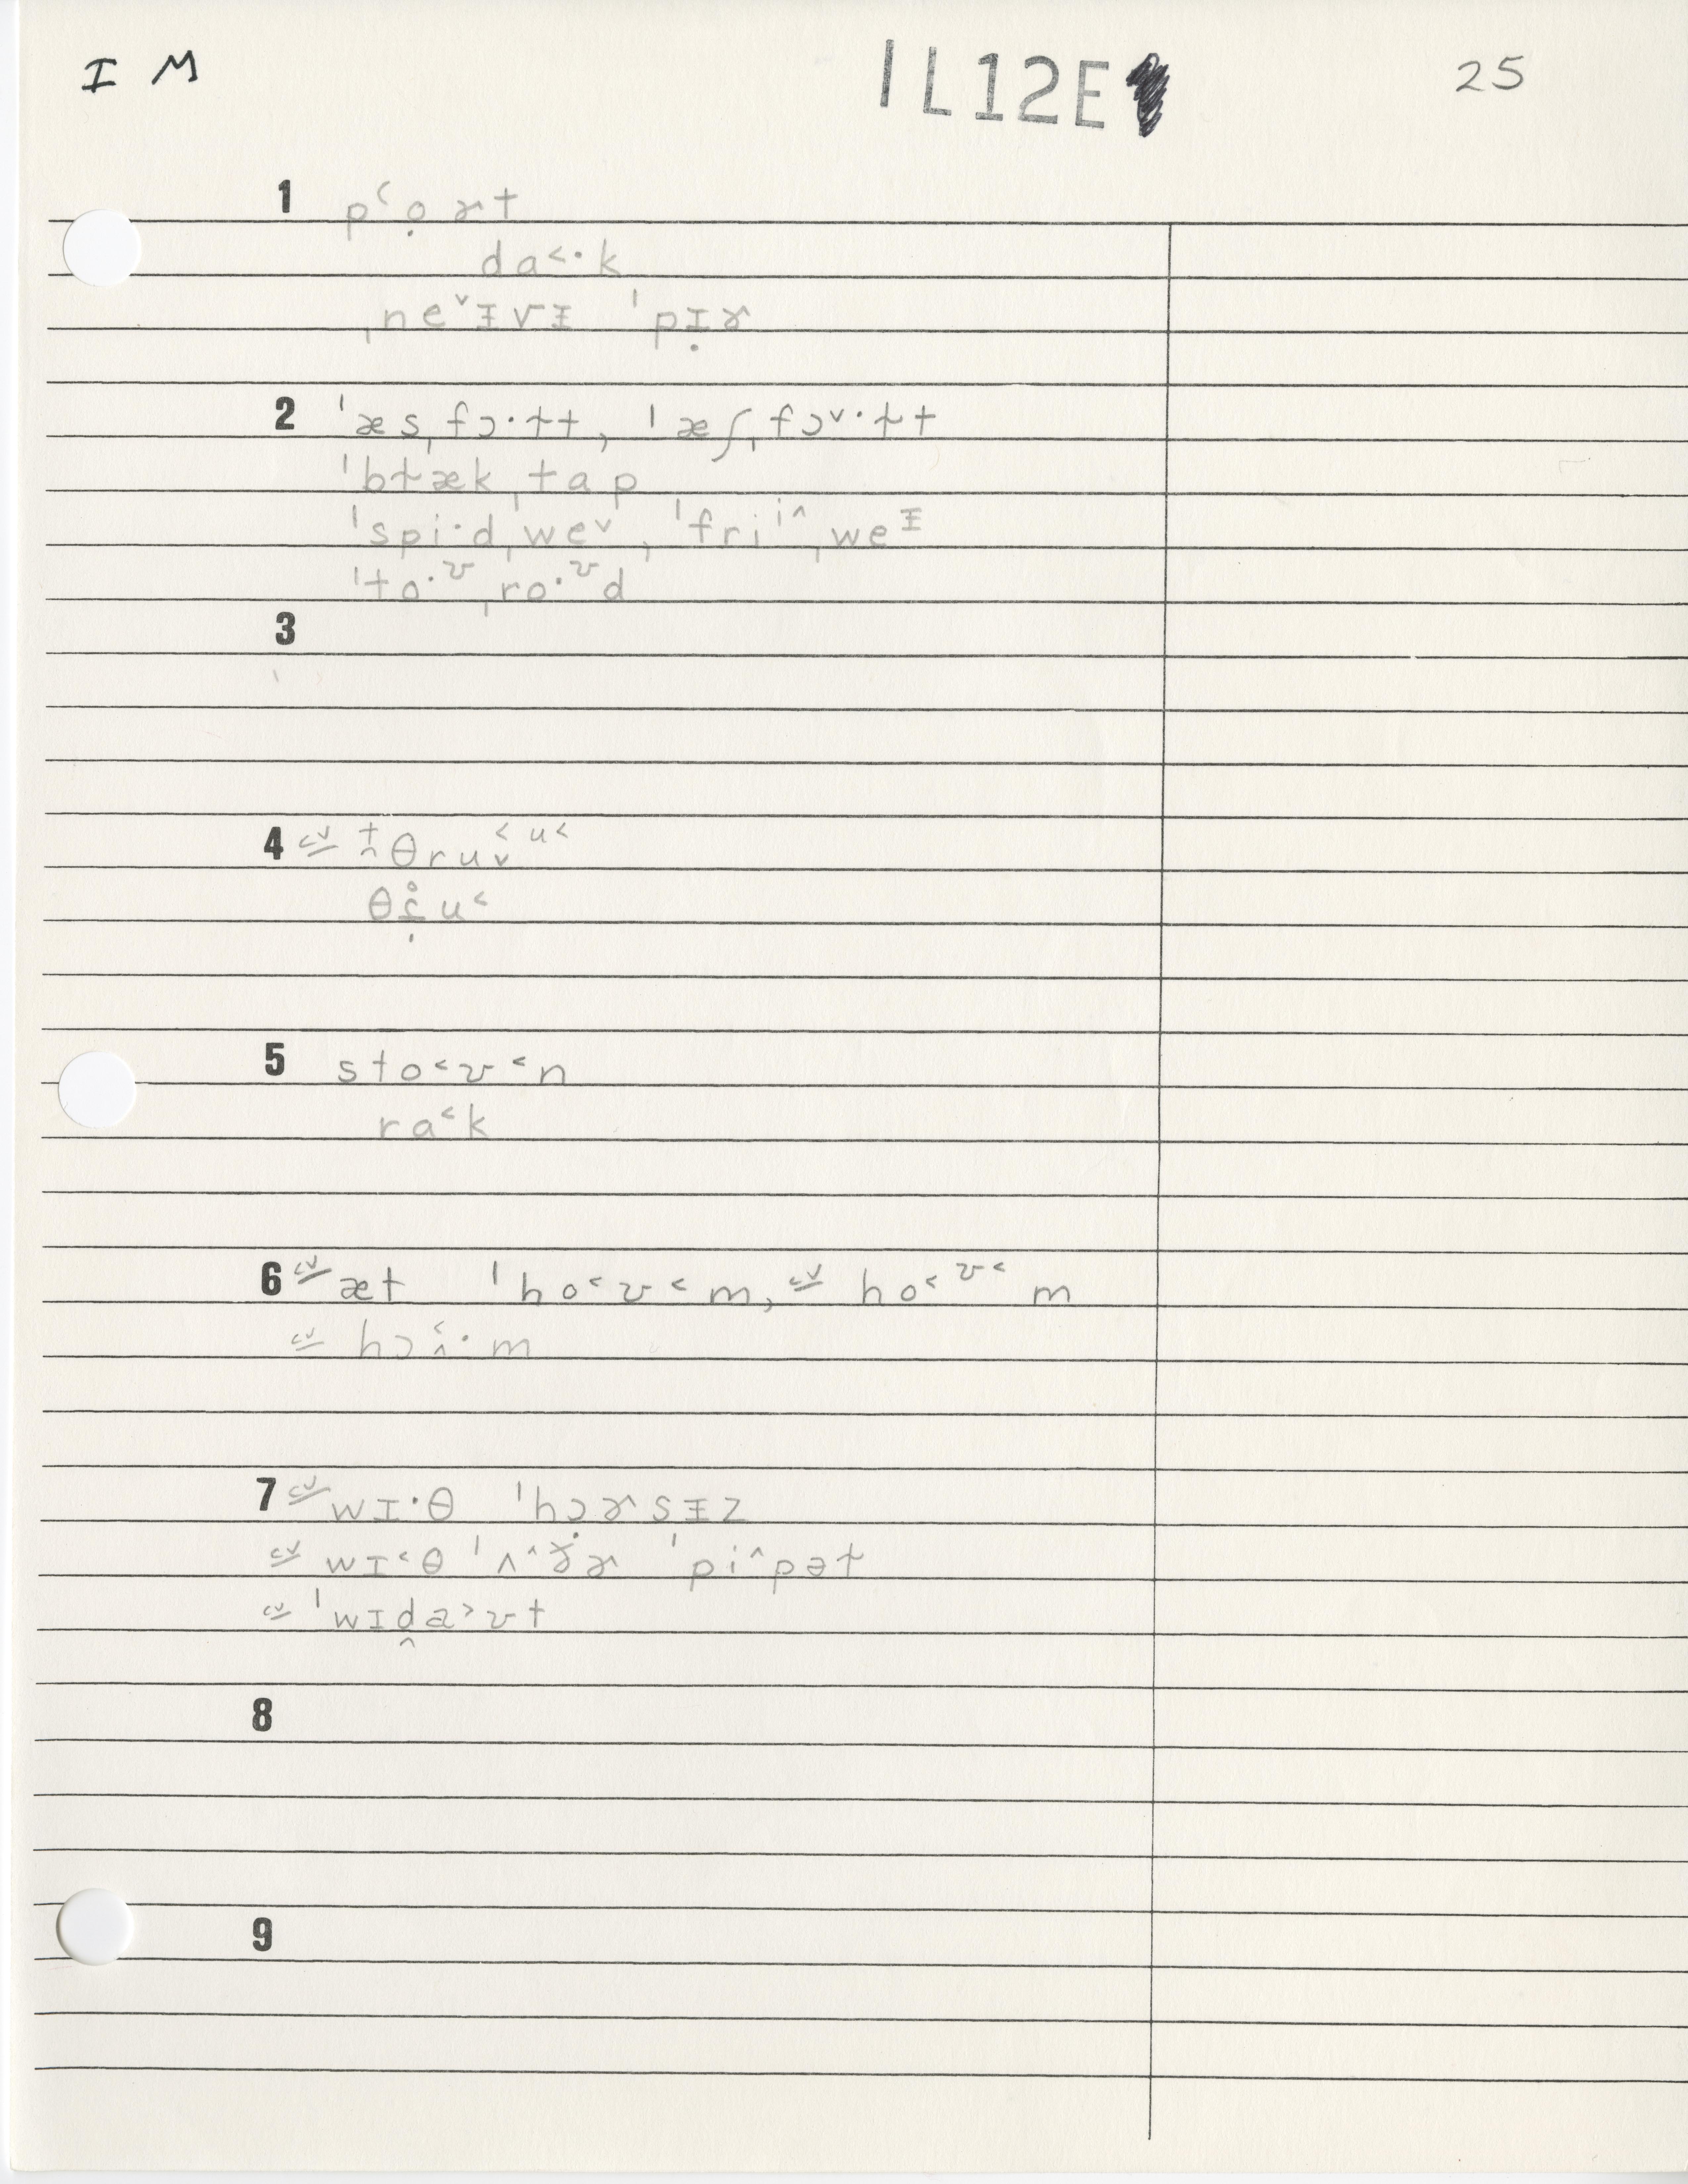 I M
1L12E
25
1 pʻọɚt
da˂·k
ˌneˇᵻvᵻ ˈpɪ̣ɚ
2 ˈæsˌfɔ·ɫt, ˈæʃˌfɔˇ·ɫt
ˈbɫækˌtap
ˈspi·dˌweˇ, ˈfriⁱ^ˌweᵻ
ˈto·ᶷˌro·ᶷd
3
4 cv ṱθru˂ˬᵘ˂
θɾ̥̣u˂
5 sto˂ʊ˂n
ra˂k
6 cv æt ˈho˂ʊ˂m, cv ho˂ᶷ˂m
cv hɔ˂^·m
7 cv wɪ·θ ˈhɔɚsᵻz
cv wɪ˂θ ˈʌ^ð̇ɚ ˈpi^pəɫ
cv ˈwɪḓa˃ʊt
8
9